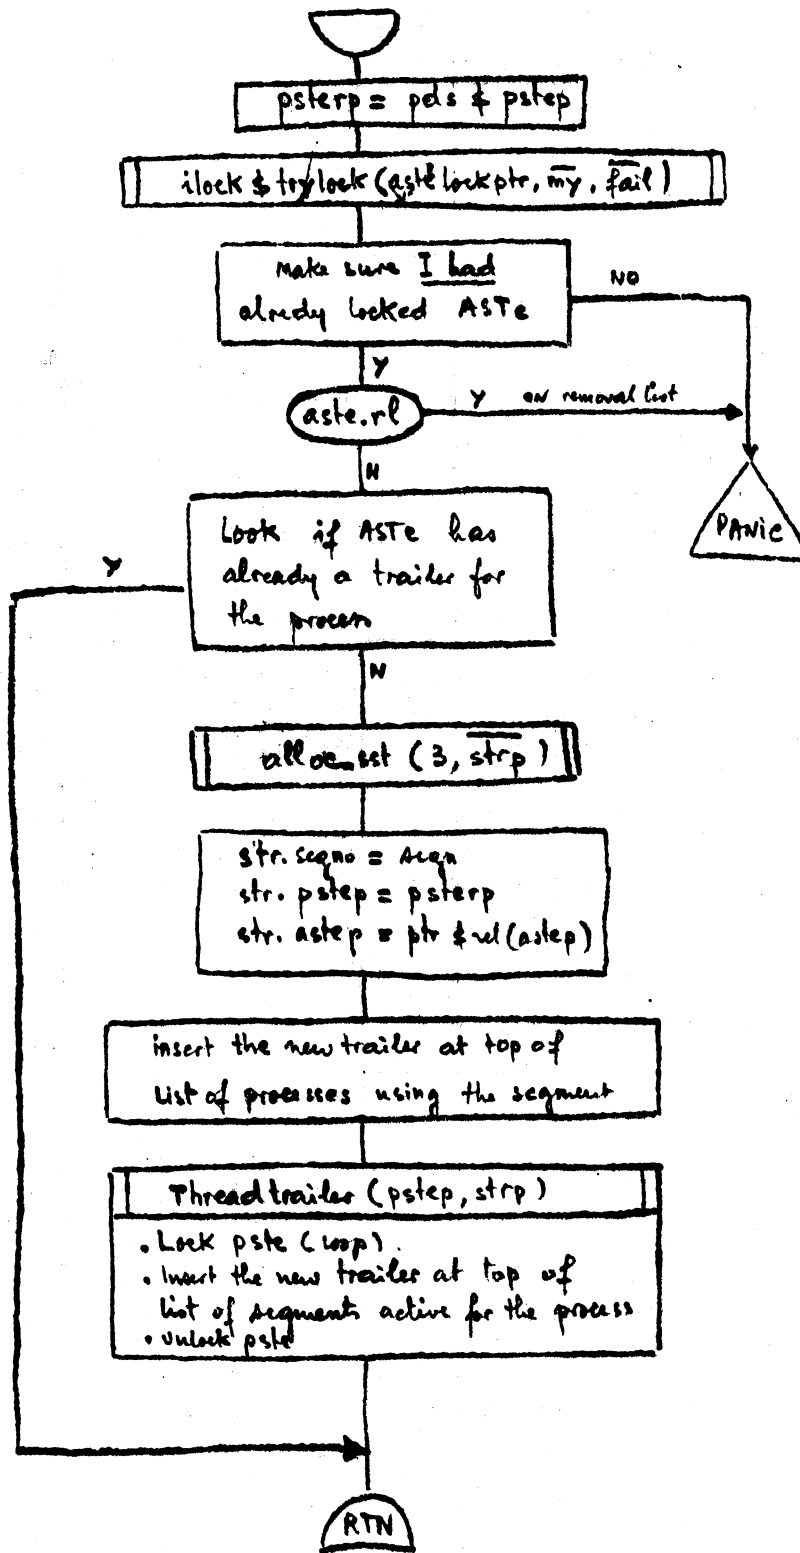 psterp = pds $ pstep
ilock $ trylock (aste lock ptr, my, fail)
Make sure I had
alredy locked ASTe
NO
Y
aste.rl
Y on removal list
N
PANIC
Look if ASTe has
already a trailer for
the process
Y
N
alloc_sst (3, strp)
str. segno = segn
str. pstep = psterp
str. astep = ptr $ rel (astep)
insert the new trailer at top of
List of processes using the segment
Thread trailer (pstep, strp)
• Lock pste (loop).
• Insert the new trailer at top of
list of segments active for the process
• Unlock pste
RTN